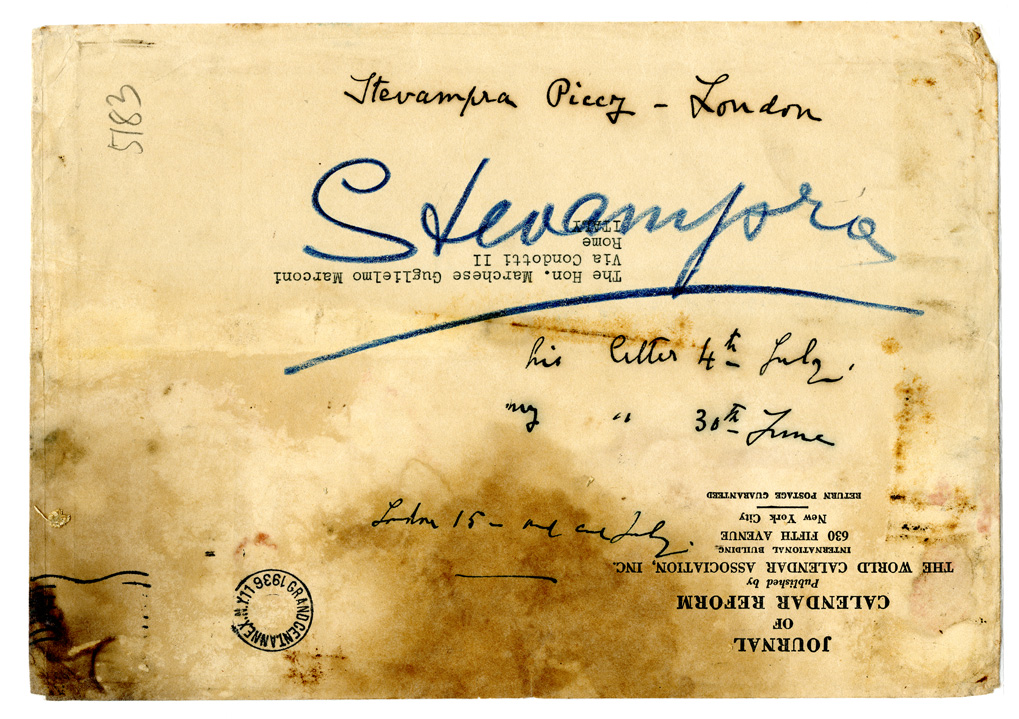 5183
Stevampra Piccy - London
Stevampra
his letter 4th July.
my " 30th June
London 15 - July.
The Hon. Marchese Guglielmo Marconi
Via Condotti II
Rome
ITALY
JOURNAL
OF
CALENDAR REFORM
Published by
THE WORLD CALENDAR ASSOCIATION, INC.
INTERNATIONAL BUILDING,
630 FIFTH AVENUE
New York City
RETURN POSTAGE GUARANTEED
GRAND CENT. ANNEX N.Y. 11 1936